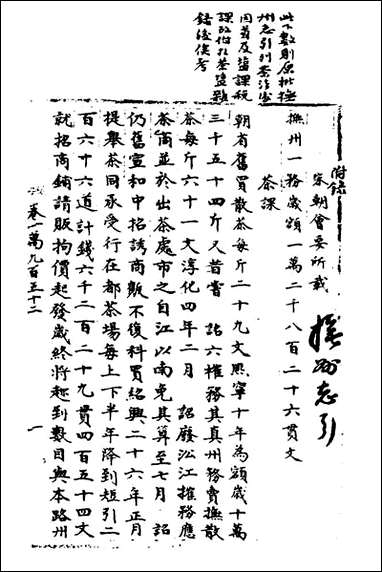 此下數則原批撫
州志引則當注
因前及鹽課
課改附於茶鹽類
録後俟考
附錄
宋朝會要所載
撫州志引
撫州一務歲額一萬二千八百二十六貫文
茶課
朝有舊買散茶每斤二十九文熙寧十年為額歲十萬
三十五十四斤又昔嘗 詔六榷務其真州務賣撫散
茶每斤六十一文淳化四年二月 詔廢沿江榷務應
茶商並於出茶處市之自江以南免其算至七月 詔
仍舊宣和中招誘商販不復科買紹興二十六年正月
提舉茶同承受行在都茶場每上下半年降到短引二
百六十六道計錢六千二百二十九貫四百五十四文
就招商鋪請販拘價起發歲終將趂到數目與本路州
卷一萬九百五十二
一